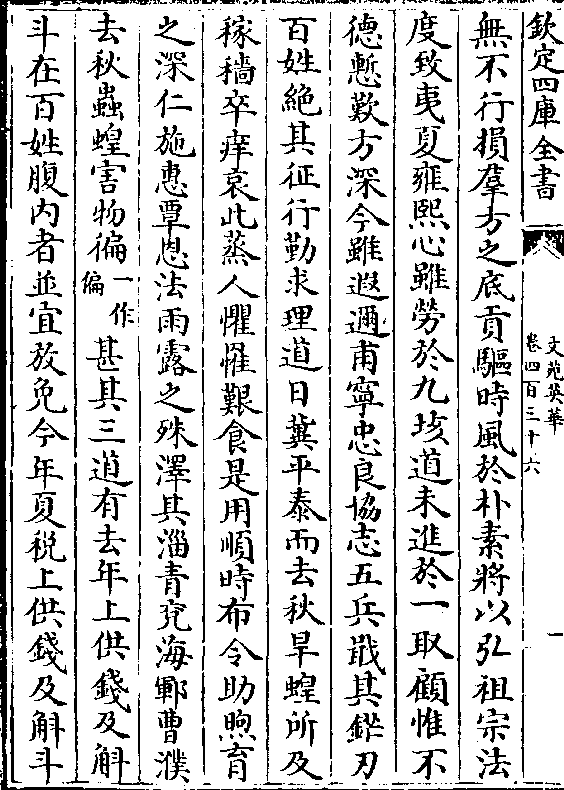 欽定四庫全書
文苑英華
卷四百三十六
一
無不行損羣方之底貢驅時風於朴素將以弘祖宗法
度致夷夏雍熙心雖勞於九垓道未進於一取顧惟不
德慙歎方深今雖遐邇甫寧忠良協志五兵戢其鋩刃
百姓絶其征行勤求理道日冀平泰而去秋旱蝗所及
稼穡卒痒哀此蒸人懼罹艱食是用順時布令助煦育
之深仁施惠覃恩法雨露之殊澤其淄青兖海鄆曹濮
去秋蟲蝗害物徧一作偏甚其三道有去年上供錢及斛
斗在百姓腹内者並宜放免今年夏税上供錢及斛斗